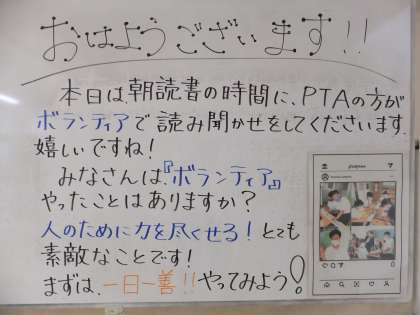 おはようございます!!
本日は朝読書の時間に、PTAの方が
ボランティアで読み聞かせをしてくださいます。
嬉しいですね!
みなさんは、『ボランティア』
やったことはありますか?
人のために力を尽くせる!とても
素敵なことです!
まずは、一日一善!!やってみよう!